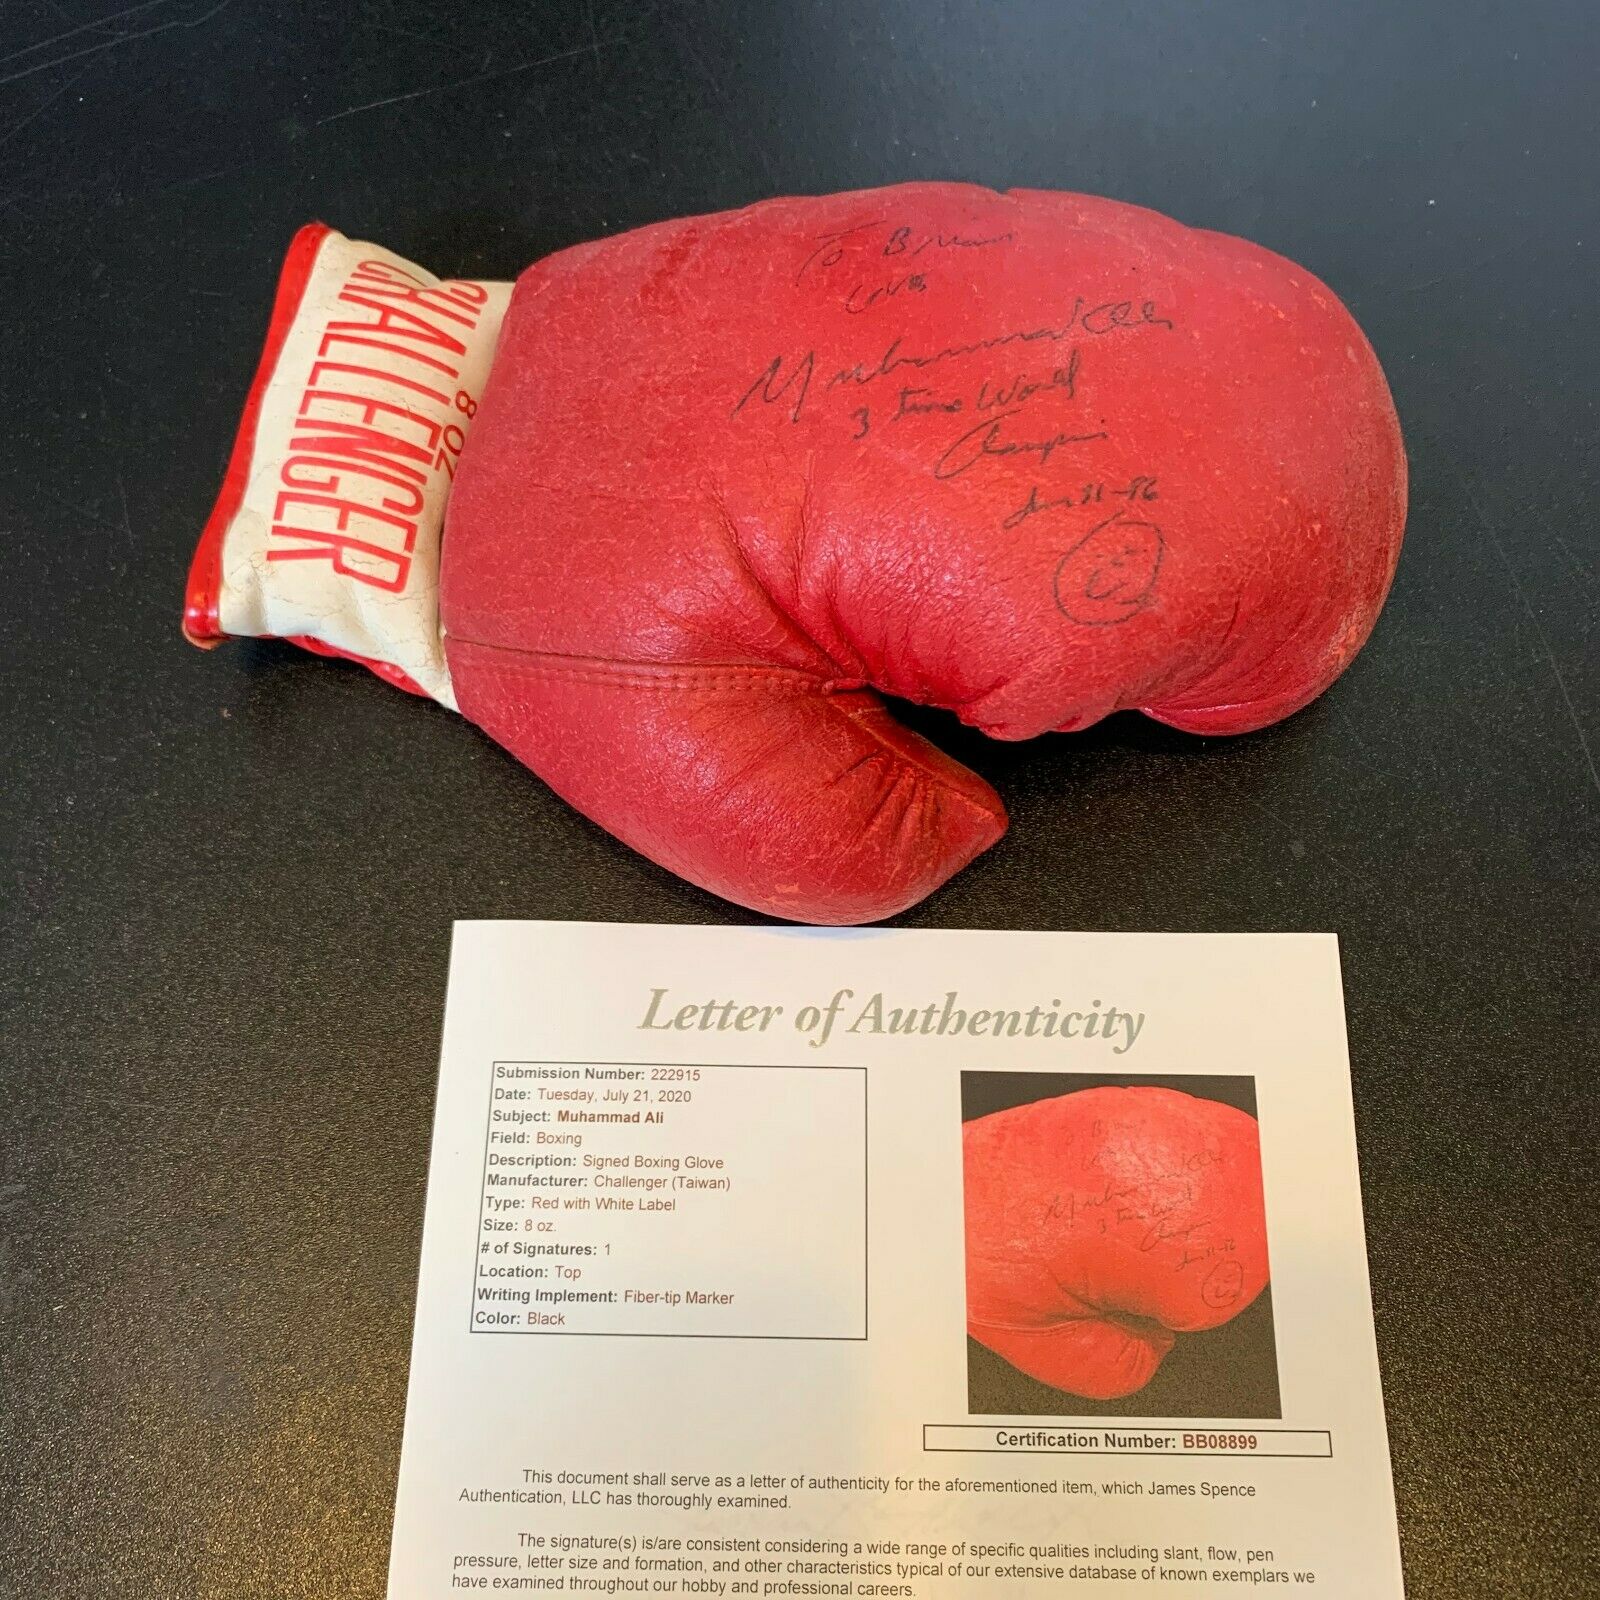 CHALLENGER
8 OZ
To Brian
Love
Muhammad Ali
3 time World
Champion
Jan 21-86
Letter of Authenticity
Submission Number: 222915
Date: Tuesday, July 21, 2020
Subject: Muhammad Ali
Field: Boxing
Description: Signed Boxing Glove
Manufacturer: Challenger (Taiwan)
Type: Red with White Label
Size: 8 oz.
# of Signatures: 1
Location: Top
Writing Implement: Fiber-tip Marker
Color: Black
Certification Number: BB08899
This document shall serve as a letter of authenticity for the aforementioned item, which James Spence
Authentication, LLC has thoroughly examined.
The signature(s) is/are consistent considering a wide range of specific qualities including slant, flow, pen
pressure, letter size and formation, and other characteristics typical of our extensive database of known exemplars we
have examined throughout our hobby and professional careers.